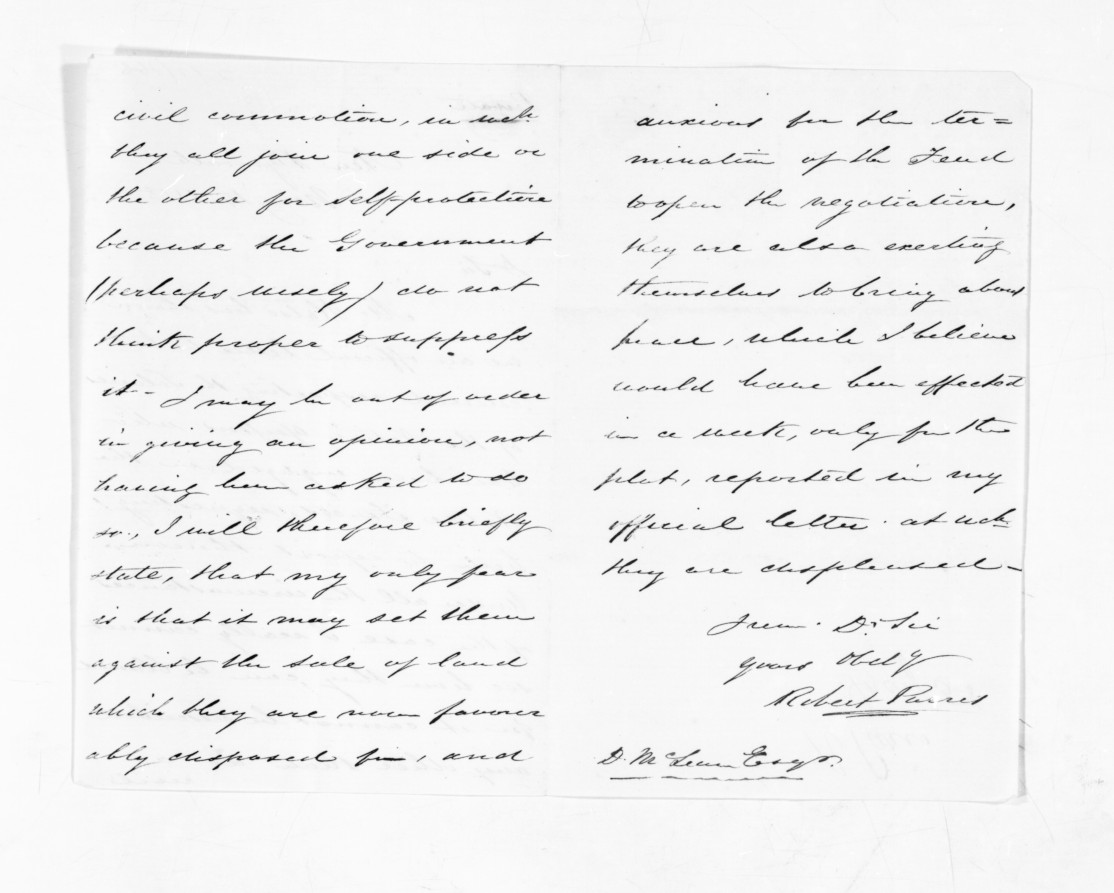 civil commotion, in wch
they all join one side or
the other for self-protection
because the Government
(perhaps wisely) do not
think proper to suppress
it - I may be out of order
in giving an opinion, not
having been asked to do
so, I will therefore briefly
state, that my only fear
is that it may set them
against the sale of land
which they are now favor
ably disposed for, and
anxious for the ter=
mination of the Feud
to open the negotiation,
they are also exerting
themselves to bring about
peace, which I believe
would have been effected
in a week, only for the
plot, reported in my
official letter. at wch
they are displeased -
I rem. Dr Sir
yours Obdly
Robert Parris
D. McLean Esqr.